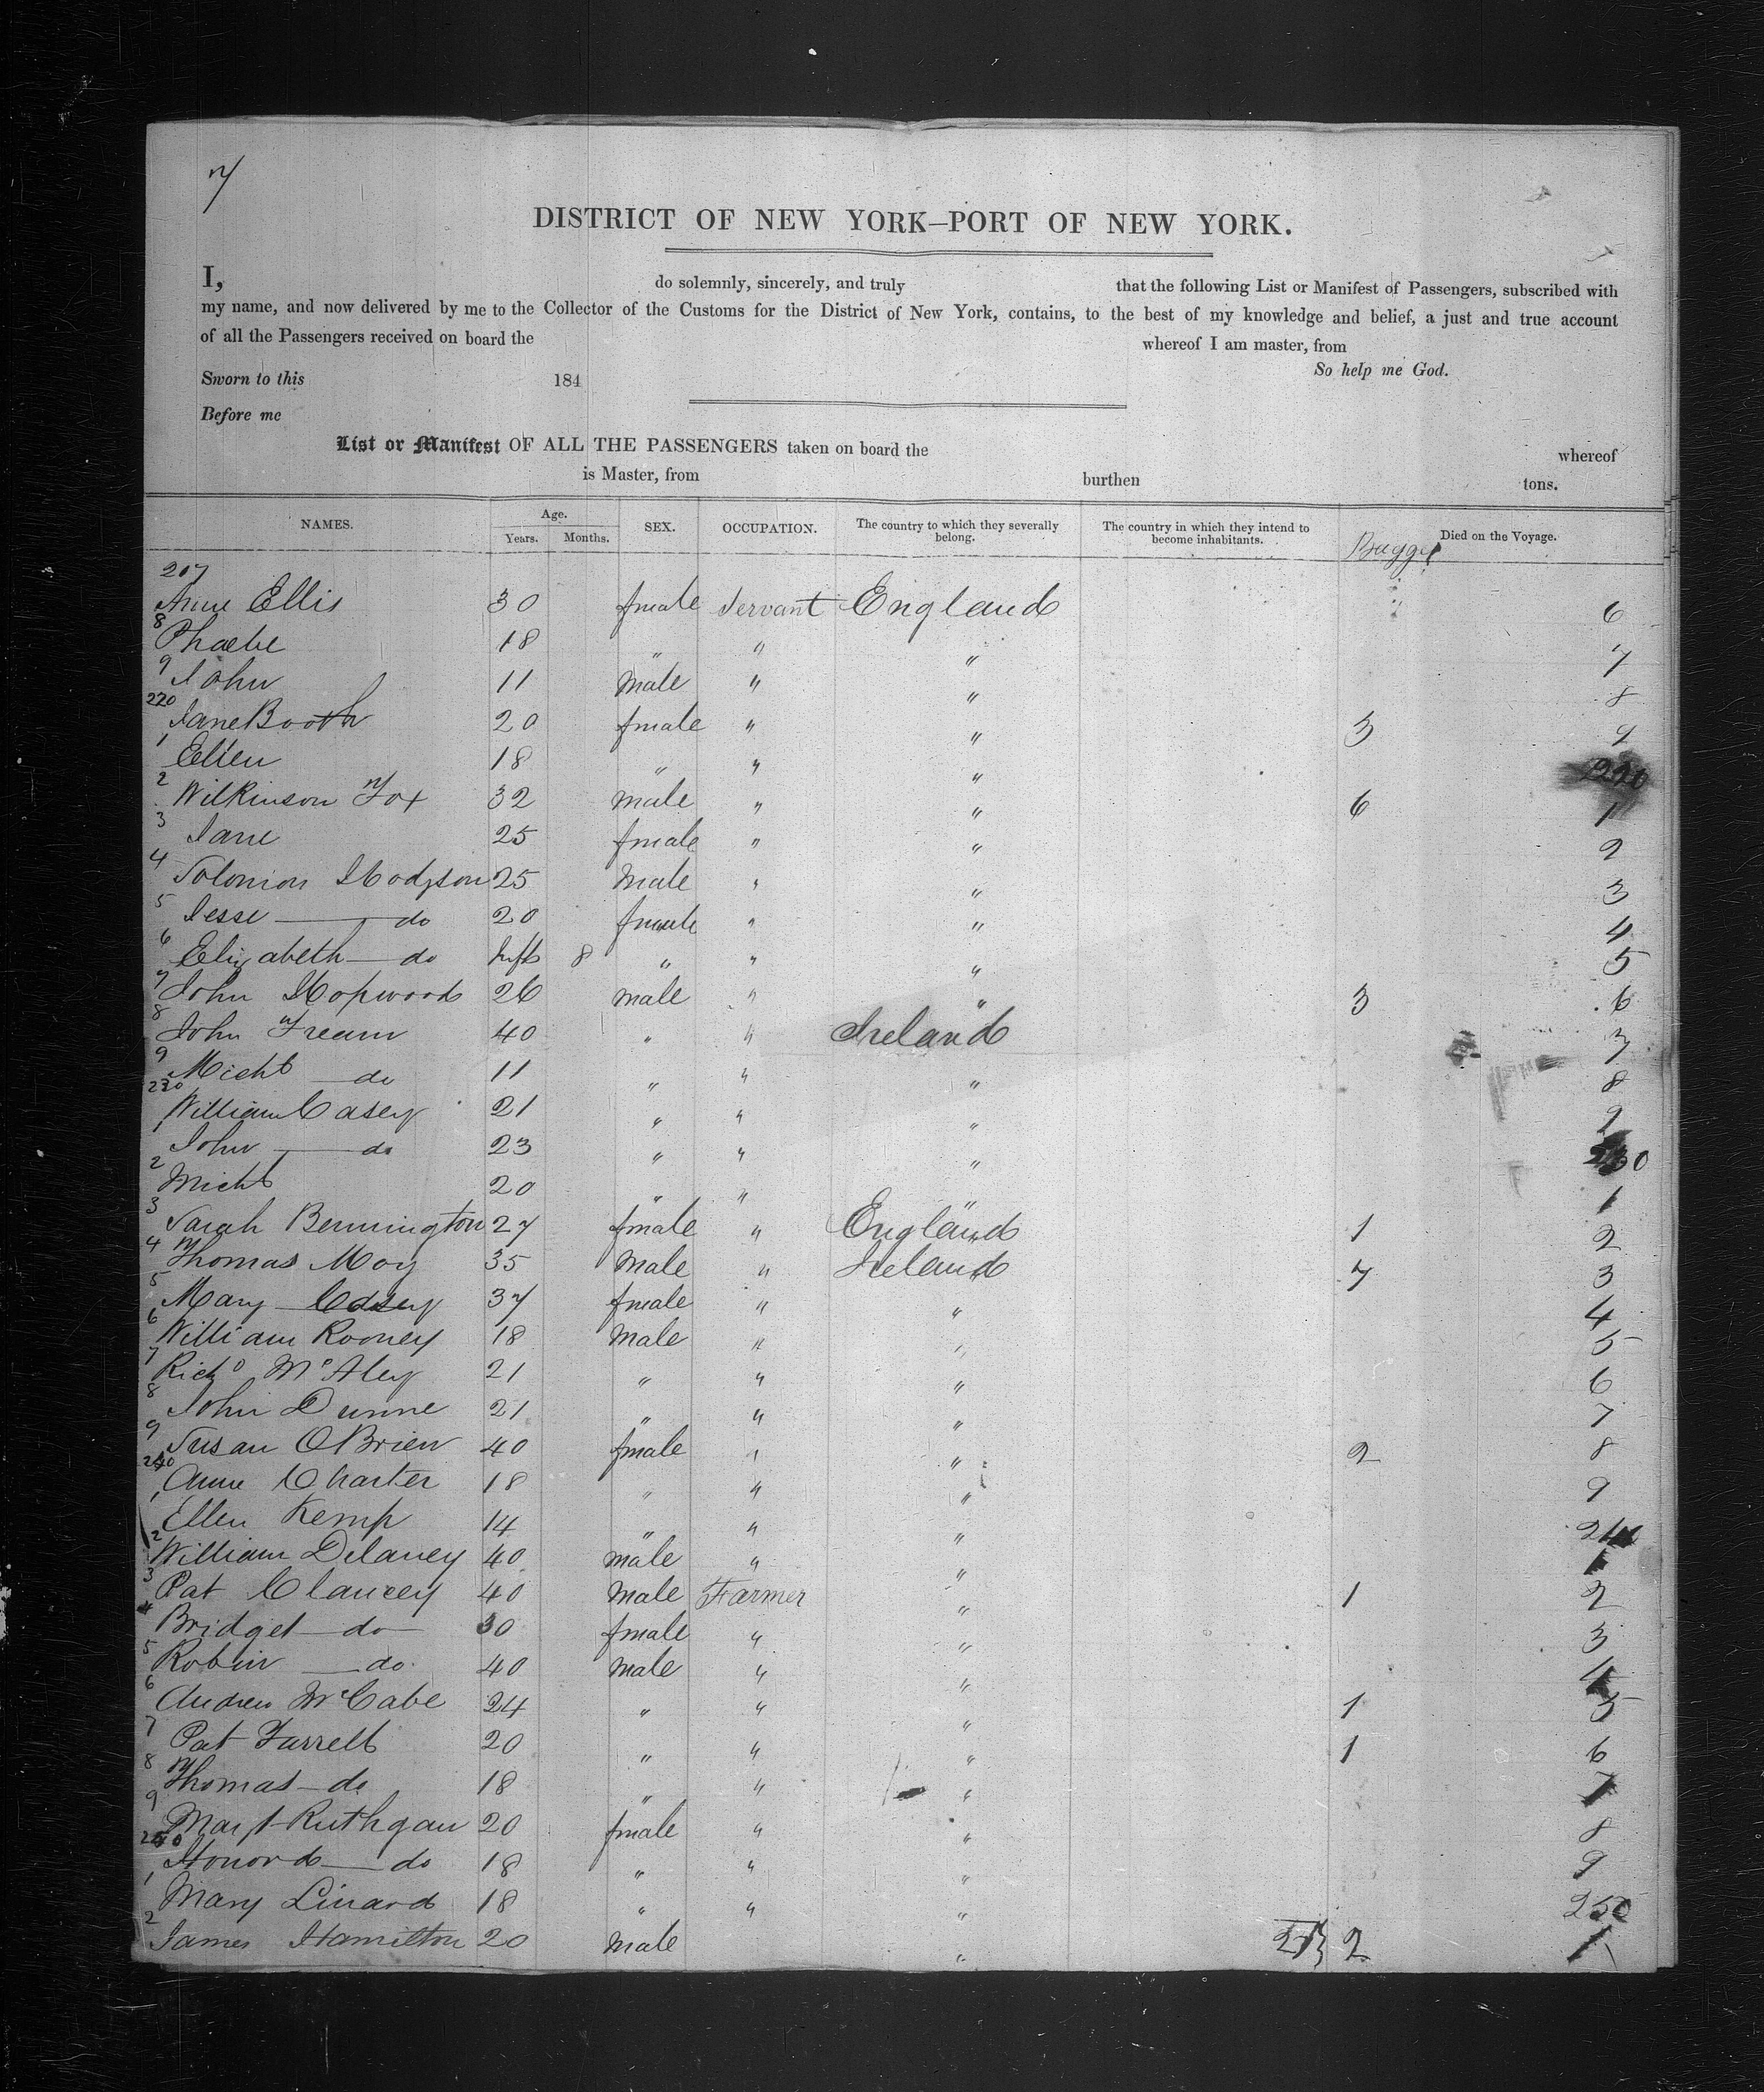 7
DISTRICT OF NEW YORK–PORT OF NEW YORK.
I, do solemnly, sincerely, and truly that the following List or Manifest of Passengers, subscribed with
my name, and now delivered by me to the Collector of the Customs for the District of New York, contains, to the best of my knowledge and belief, a just and true account
of all the Passengers received on board the whereof I am master, from
So help me God.
Sworn to this 184
Before me
List or Manifest OF ALL THE PASSENGERS taken on board the whereof
is Master, from burthen tons.
NAMES. Age. Years. Months. SEX. OCCUPATION. The country to which they severally belong. The country in which they intend to become inhabitants. Died on the Voyage.
217
Anne Ellis 30 female Servant England 6
8 Phoebe 18 " " " 7
9 John 11 Male " " 8
220 Jane Booth 20 female " " 3 9
1 Ellen 18 " " " 220
2 Wilkinson Fox 32 male " " 6 1
3 Jane 25 female " " 2
4 Solomon Hodgson 25 Male " " 3
5 Jesse do 20 female " " 4
6 Elizabeth do Inft 8 " " " 5
7 John Hopwood 26 male " " 3 6
8 John Fream 40 " " Ireland 7
9 Michl do 11 " " " 8
230 William Casey 21 " " " 9
1 John do 23 " " " 230
2 Michl 20 " " " 1
3 Sarah Bennington 27 female " England 1 2
4 Thomas Moy 35 Male " Ireland 7 3
5 Mary Casey 37 female " " 4
6 William Rooney 18 Male " " 5
7 Richd McAley 21 " " " 6
8 John Dunne 21 " " " 7
9 Susan OBrien 40 female " " 2 8
240 Anne Charter 18 " " " 9
1 Ellen Kemp 14 " " " 240
2 William Delaney 40 male " " 1
3 Pat Clancey 40 Male Farmer " 1 2
4 Bridget do 30 female " " 3
5 Robin do 40 male " " 4
6 Andrew McCabe 24 " " " 1 5
7 Pat Farrell 20 " " " 1 6
8 Thomas do 18 " " " 7
9 Margt Ruthgan 20 female " " 8
250 Honora do 18 " " " 9
1 Mary Linard 18 " " " 250
2 James Hamilton 20 Male " 2 1